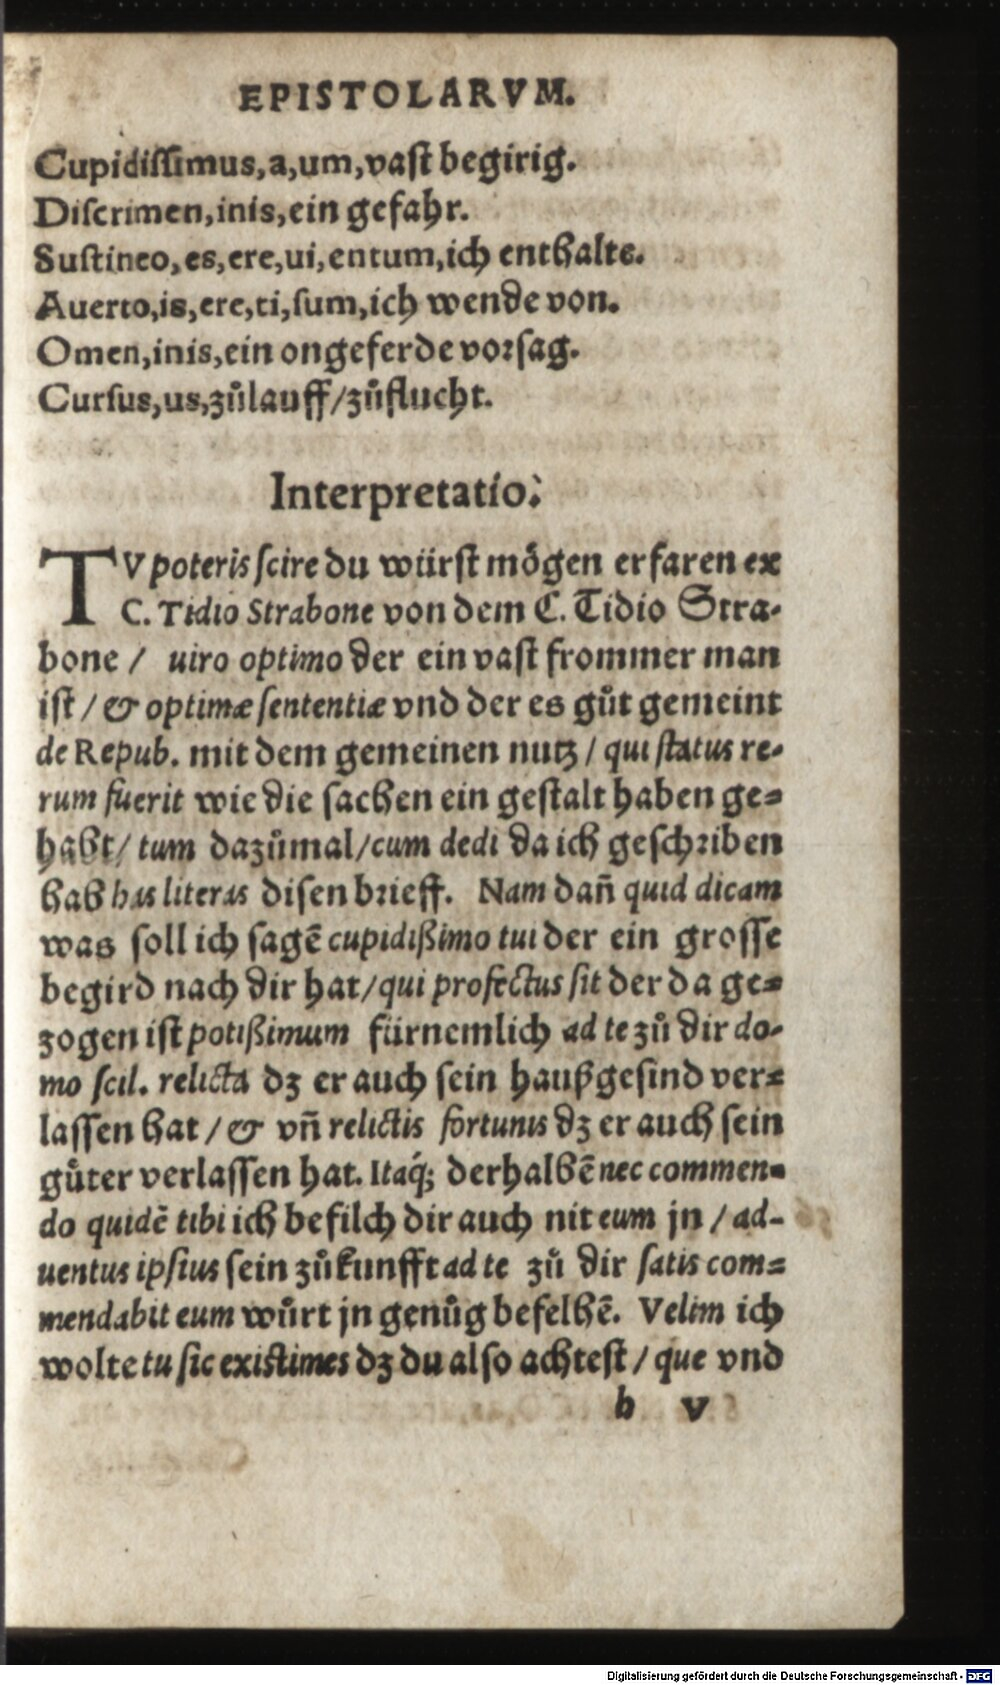 EPISTOLARVM.
Cupidiſſimus, a, um, vaſt begirig.
Diſcrimen, inis, ein gefahr.
Suſtineo, es, ere, ui, entum, ich enthalte.
Auerto, is, ere, ti, ſum, ich wende von.
Omen, inis, ein ongeferde vorſag.
Curſus, us, zuͦlauff/zuͦflucht.
Interpretatio:
TV poteris ſcire du würſt moͤgen erfaren ex
C. Tidio Strabone von dem C. Tidio Stra-
bone / uiro optimo der ein vaſt frommer man
iſt / & optimæ ſententiæ vnd der es guͦt gemeint
de Repub. mit dem gemeinen nutz / qui ſtatus re-
rum fuerit wie die ſachen ein geſtalt haben ge-
habt/ tum dazuͦmal/cum dedi da ich geſchriben
hab has literas diſen brieff. Nam dañ quid dicam
was soll ich ſagē cupidißimo tui der ein groſſe
begird nach dir hat/qui profectus ſit der da ge-
zogen iſt potißimum fürnemlich ad te zuͦ dir do-
mo ſcil. relicta dz er auch ſein haußgeſind ver-
laſſen hat / & vñ relictis fortunis dz er auch ſein
guͤter verlaſſen hat. Itaq́; derhalbē nec commen-
do quidē tibi ich befilch dir auch nit eum jn / ad-
uentus ipſius ſein zuͦkunfft ad te zuͦ dir ſatis com-
mendabit eum wuͤrt jn genuͦg befelhē. Velim ich
wolte tu ſic exiſtimes dz du alſo achteſt / que vnd
b v
Digitalisierung gefördert durch die Deutsche Forschungsgemeinschaft - DFG